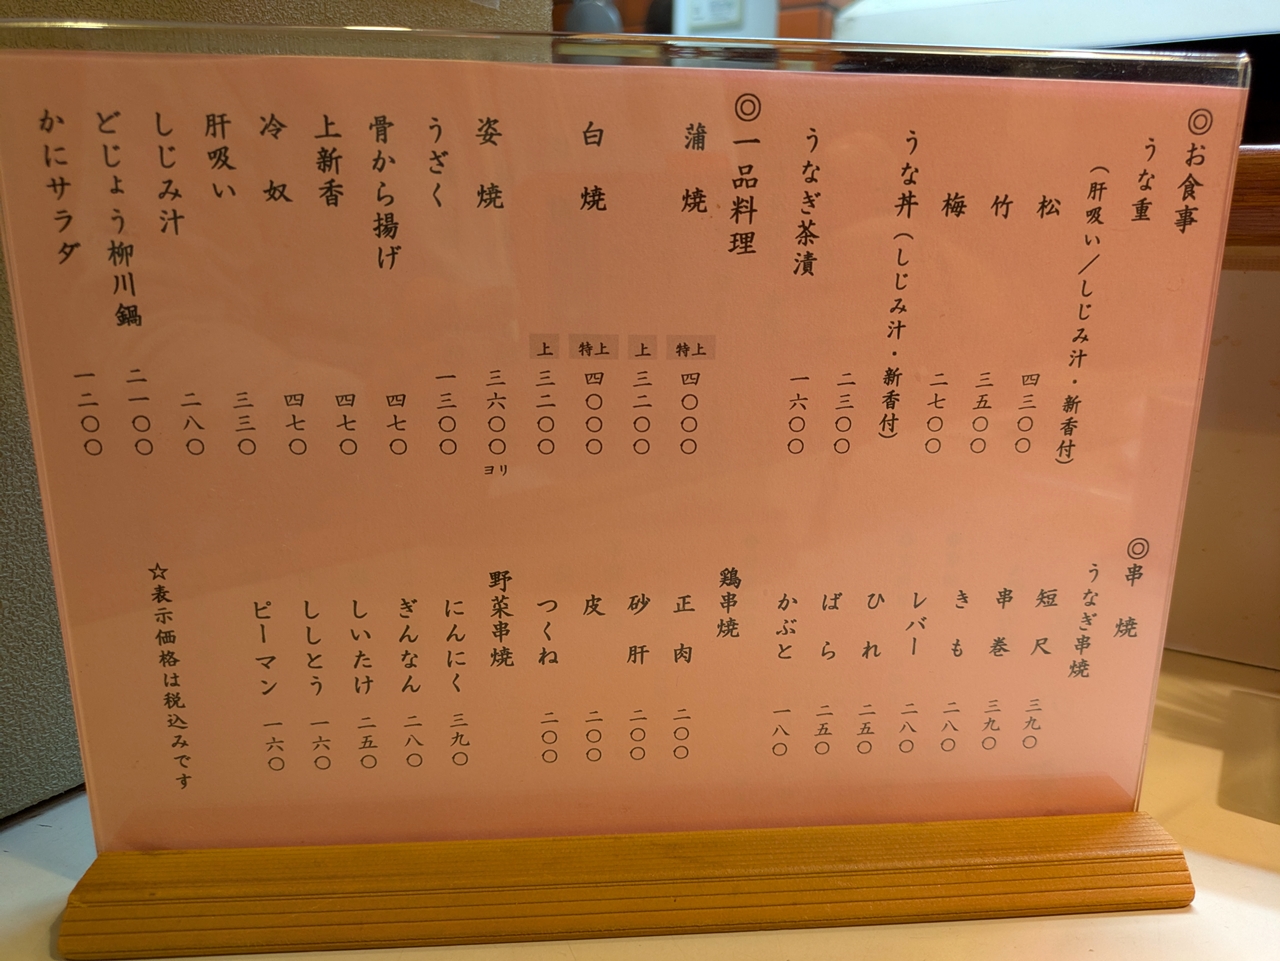 ◎お食事
うな重
(肝吸い／しじみ汁・新香付)
松 四三〇〇
竹 三五〇〇
梅 二七〇〇
うな丼(しじみ汁・新香付)
二三〇〇
うなぎ茶漬 一六〇〇
◎一品料理
蒲焼 特上 四〇〇〇
上 三二〇〇
白焼 特上 四〇〇〇
上 三二〇〇
姿焼 三六〇〇ヨリ
うざく 一三〇〇
骨から揚げ 四七〇
上新香 四七〇
冷奴 四七〇
肝吸い 三三〇
しじみ汁 二八〇
どじょう柳川鍋 二一〇〇
かにサラダ 一二〇〇
◎串焼
うなぎ串焼
短尺 三九〇
串巻 三九〇
きも 二八〇
レバー 二八〇
ひれ 二五〇
ばら 二五〇
かぶと 一八〇
鶏串焼
正肉 二〇〇
砂肝 二〇〇
皮 二〇〇
つくね 二〇〇
野菜串焼
にんにく 三九〇
ぎんなん 二八〇
しいたけ 二五〇
ししとう 一六〇
ピーマン 一六〇
☆表示価格は税込みです